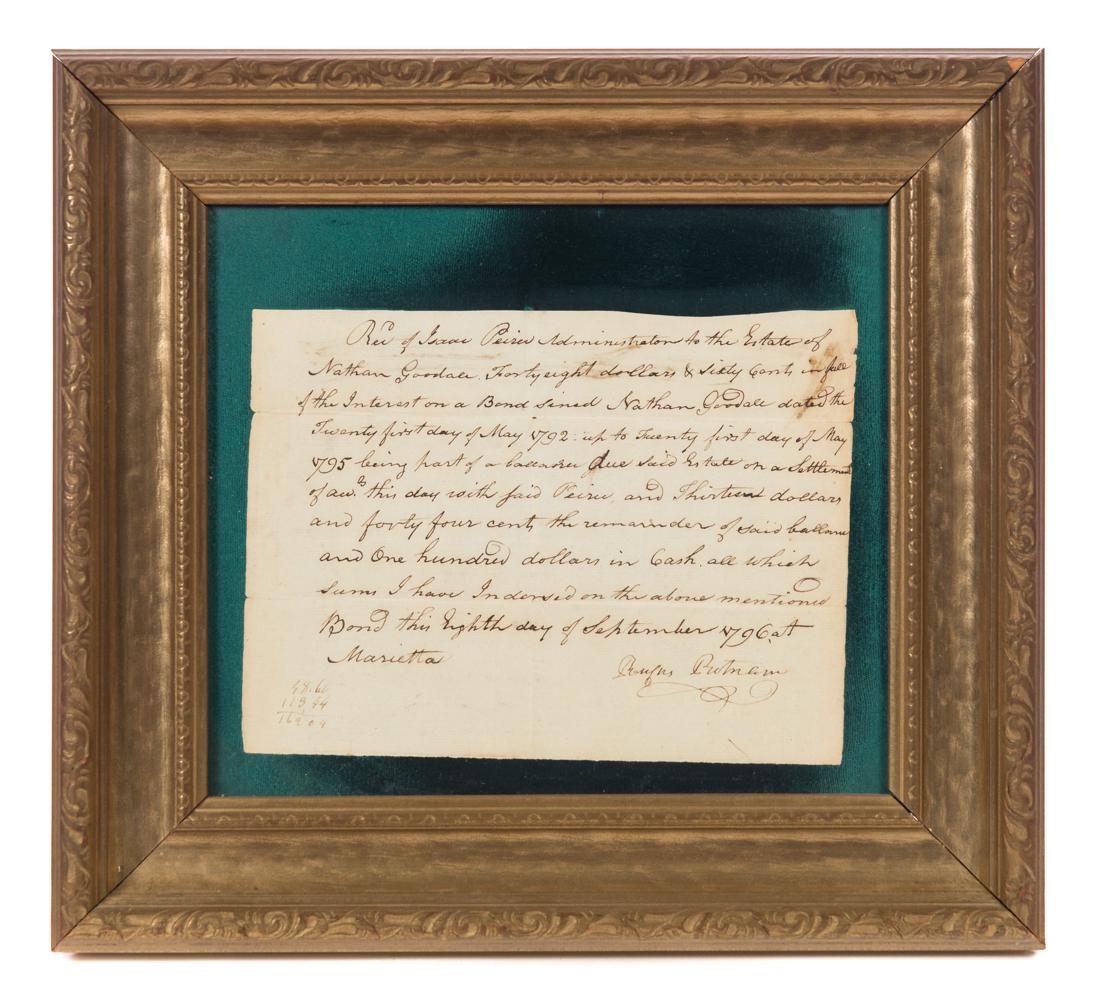 Rec'd of Isaac Peirce Administrator to the Estate of
Nathan Goodale. Fortyeight dollars & Sixty Cents in full
of the Interest on a Bond sined Nathan Goodale dated the
Twenty first day of May 1792: up to Twenty first day of May
1795 being part of a ballance due Said Estate on a Settlement
of acc.ts this day with said Peirce, and Thirteen dollars
and forty four cents the remainder of said ballance
and One hundred dollars in Cash. all which
sums I have Indorsed on the above mentioned
Bond this Eighth day of September 1796. at
Marietta
Rufus Putnam
48.60
113 44